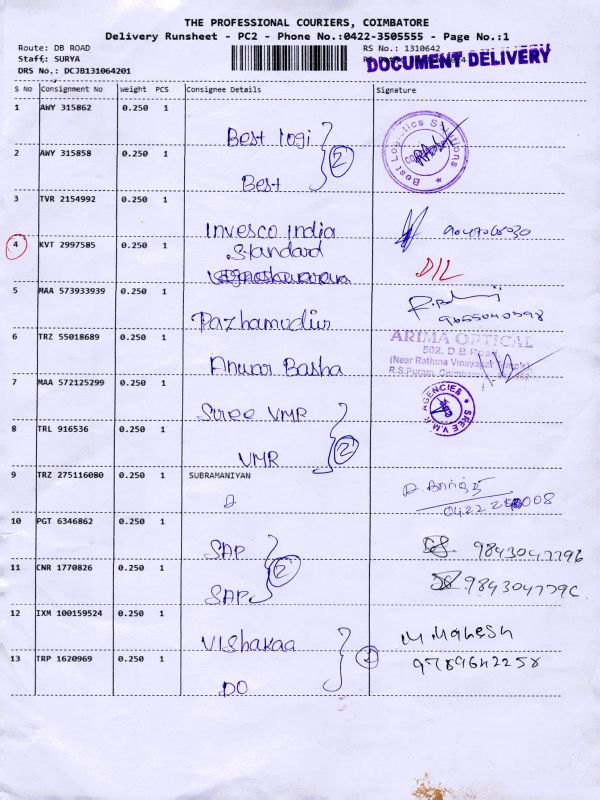 THE PROFESSIONAL COURIERS, COIMBATORE
Delivery Runsheet - PC2 - Phone No.:0422-3505555 - Page No.:1
Route: DB ROAD
RS No.: 1310642
Staff: SURYA
DOCUMENT DELIVERY
DRS No.: DCJB131064201
S No Consignment No Weight PCS Consignee Details Signature
1 AWY 315862 0.250 1
Best Logi
2 AWY 315858 0.250 1
2
Best
Best Logistics Solutions
3 TVR 2154992 0.250 1
Invesco India
4 KVT 2997585 0.250 1
Standard
D/L
5 MAA 573933939 0.250 1
Pazhamudir
9655040398
6 TRZ 55018689 0.250 1
ARIMA OPTICAL
502, D.B. Road
(Near Rathina Vinayagar Temple)
R.S.Puram, Coimbatore
Anwar Basha
7 MAA 572125299 0.250 1
Sree VMR
SREE V.M.R AGENCIES
8 TRL 916536 0.250 1
2
VMR
9 TRZ 275116080 0.250 1 SUBRAMANIYAN
10 PGT 6346862 0.250 1
SAP
9843047796
11 CNR 1770826 0.250 1
2
SAP
984304779
12 IXM 100159524 0.250 1
Vishakaa
M. Mahesh
13 TRP 1620969 0.250 1
2
9789642258
DO